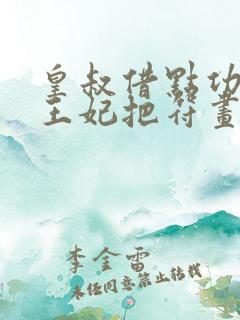 皇叔借點功
王妃把符畫
李金雷
未经同意禁止转载